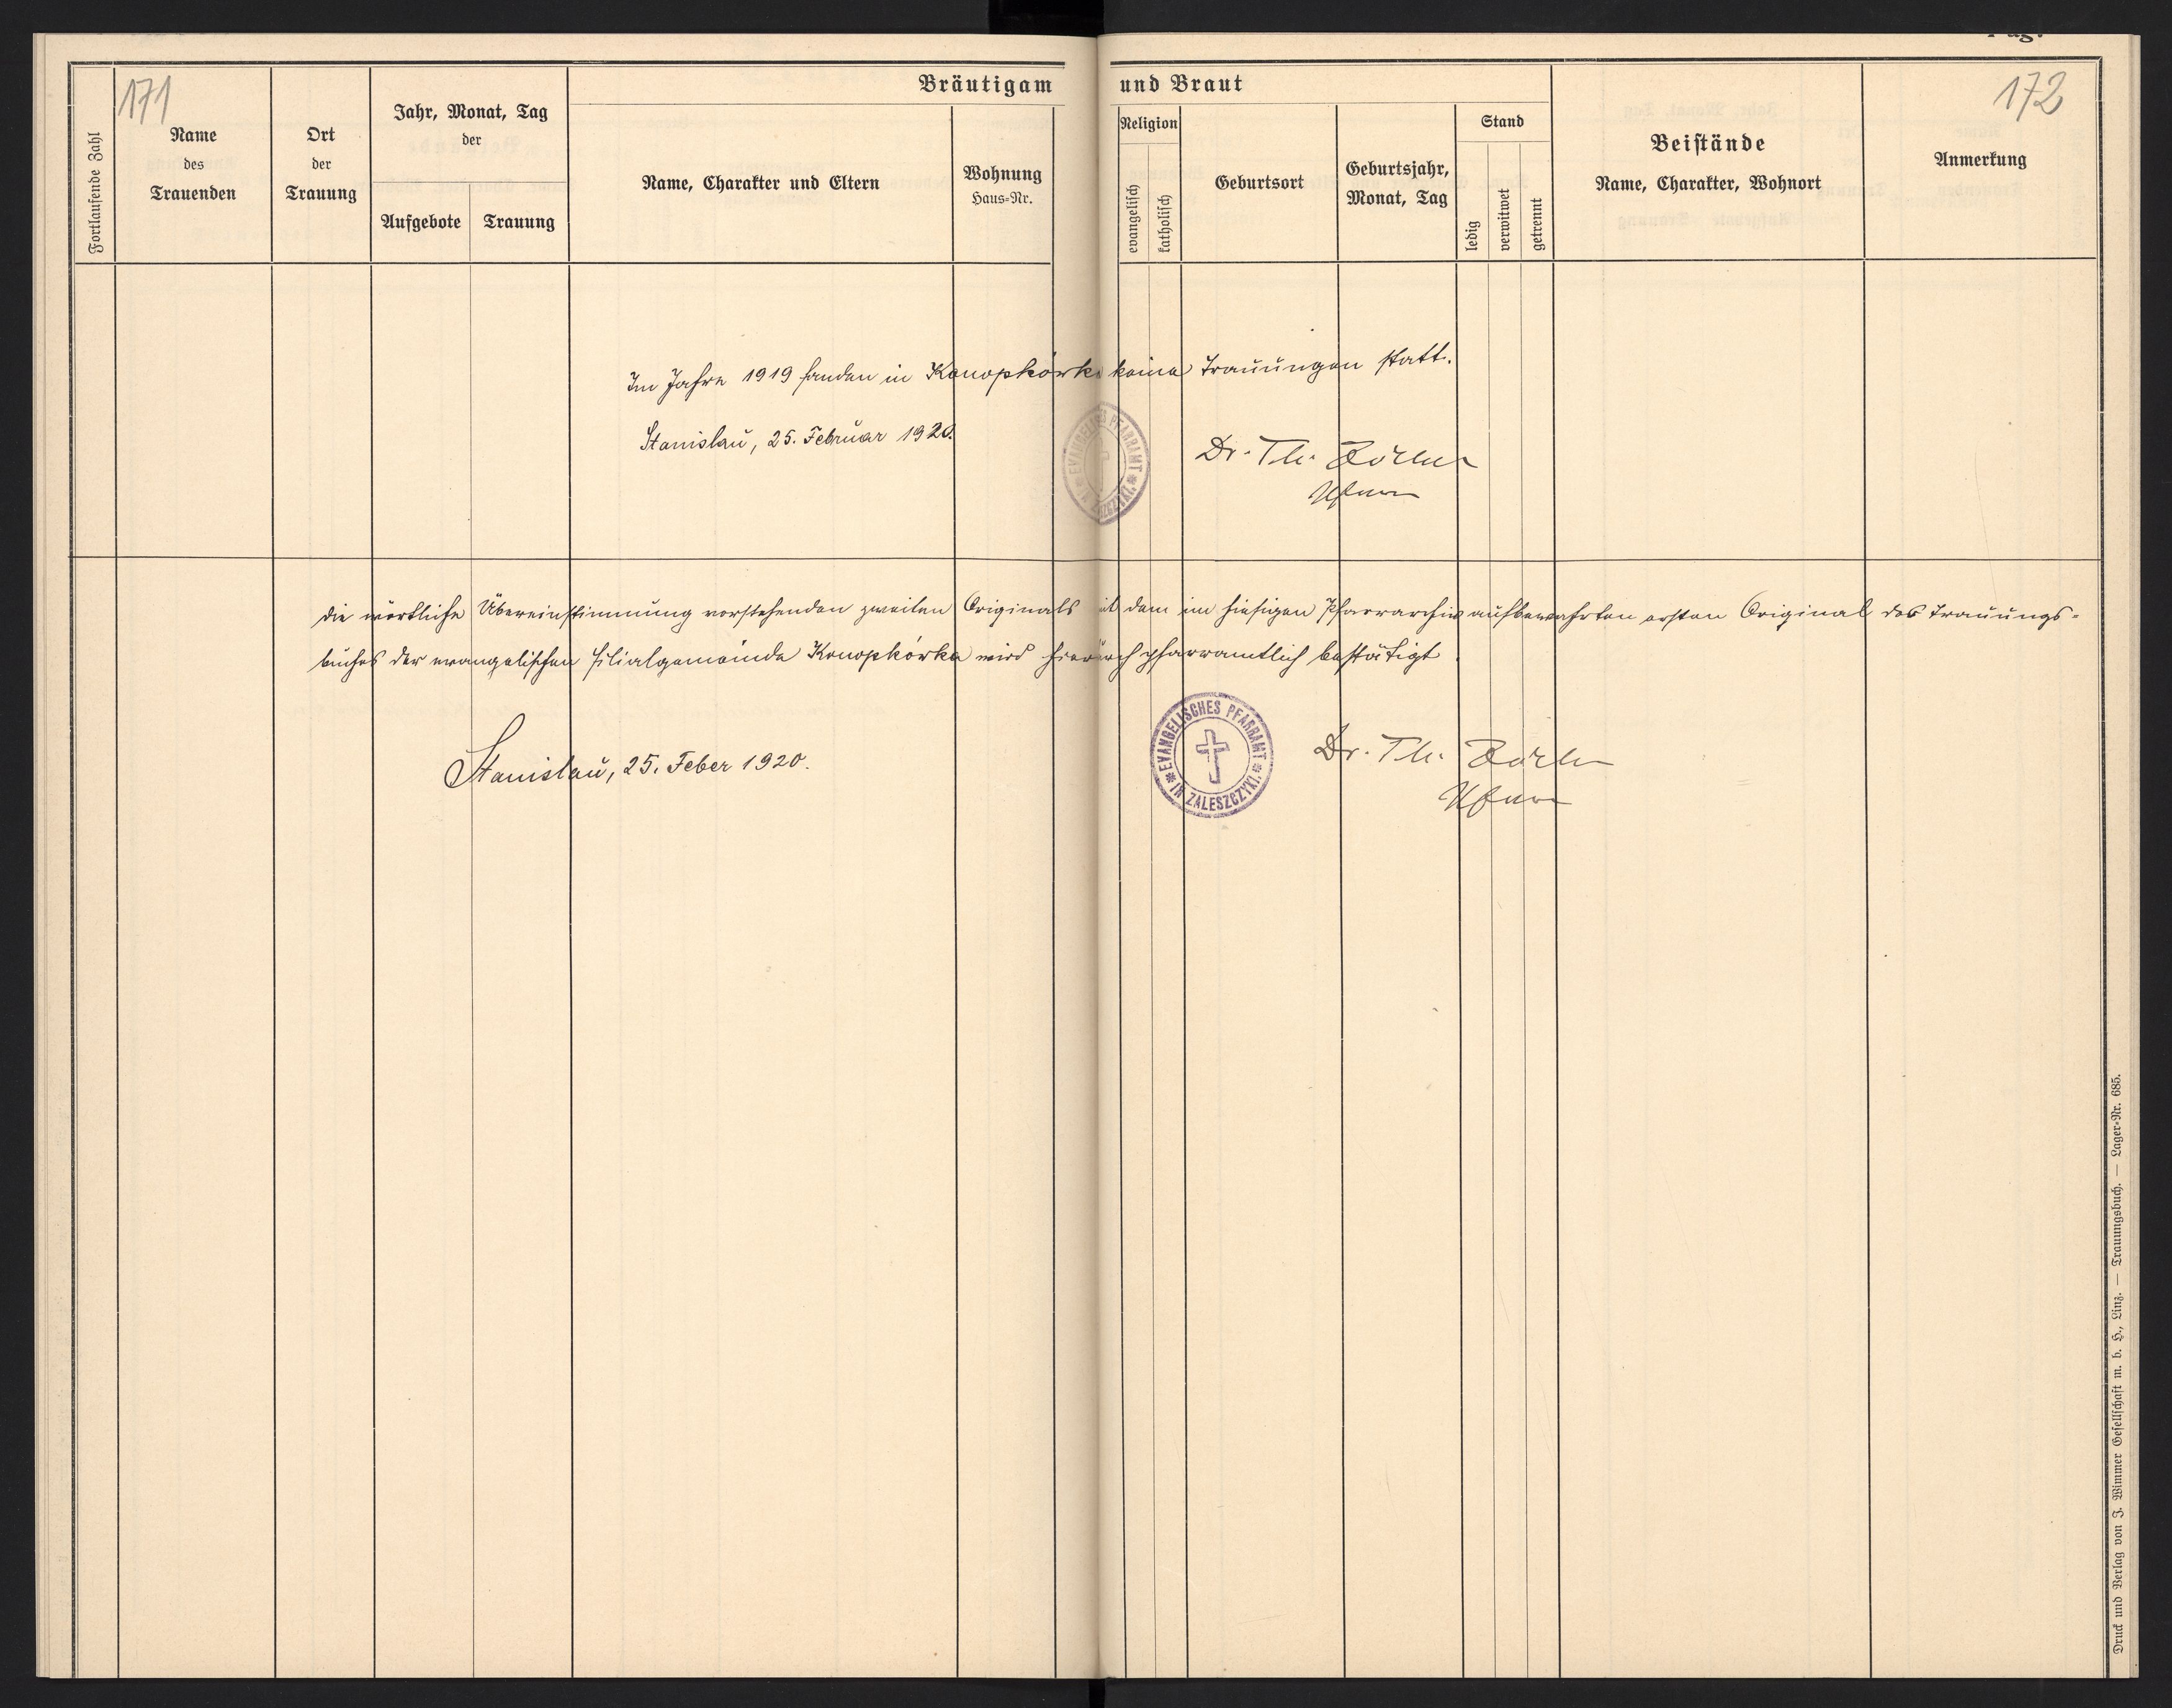 171
172
Bräutigam und Braut
Fortlaufende Zahl
Name
des
Trauenden
Ort
der
Trauung
Jahr, Monat, Tag
der
Aufgebote
Trauung
Name, Charakter und Eltern
Wohnung
Haus-Nr.
Religion
evangelisch
katholisch
Geburtsort
Geburtsjahr,
Monat, Tag
Stand
ledig
verwitwet
getrennt
Beistände
Name, Charakter, Wohnort
Anmerkung
Im Jahre 1919 fanden in Konopkówka keine Trauungen statt.
Stanislau, 25. Februar 1920.
EVANGELISCHES PFARRAMT
IN ZALESZCZYKI.
Dr. Th. Zöckler
Pfarrer
die wörtliche Übereinstimmung vorstehenden zweiten Originals mit dem im hiesigen Pfarrarchiv aufbewahrten ersten Original des Trauungs-
buches der evangelischen Filialgemeinde Konopkówka wird hierdurch pfarramtlich bestätigt.
Stanislau, 25. Feber 1920.
EVANGELISCHES PFARRAMT
IN ZALESZCZYKI.
Dr. Th. Zöckler
Druck und Verlag von J. Wimmer Gesellschaft m. b. H., Linz. — Trauungsbuch. — Lager-Nr. 685.